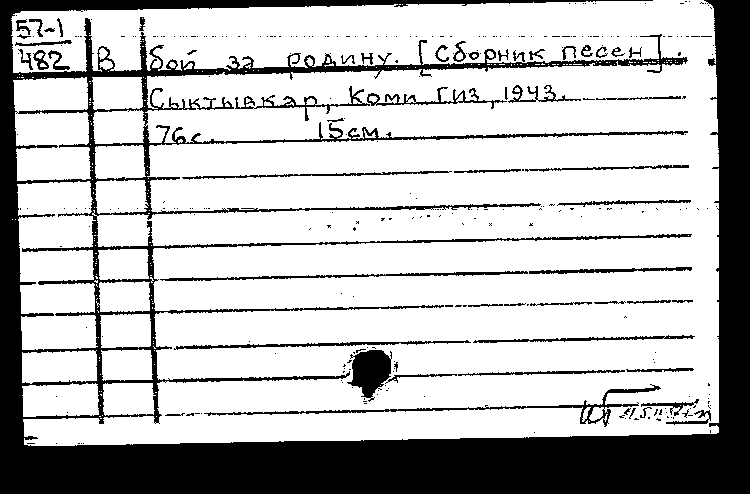 57-1
482 В бой за родину. [Сборник песен].
Сыктывкар, Коми Гиз, 1943.
76с. 15см.